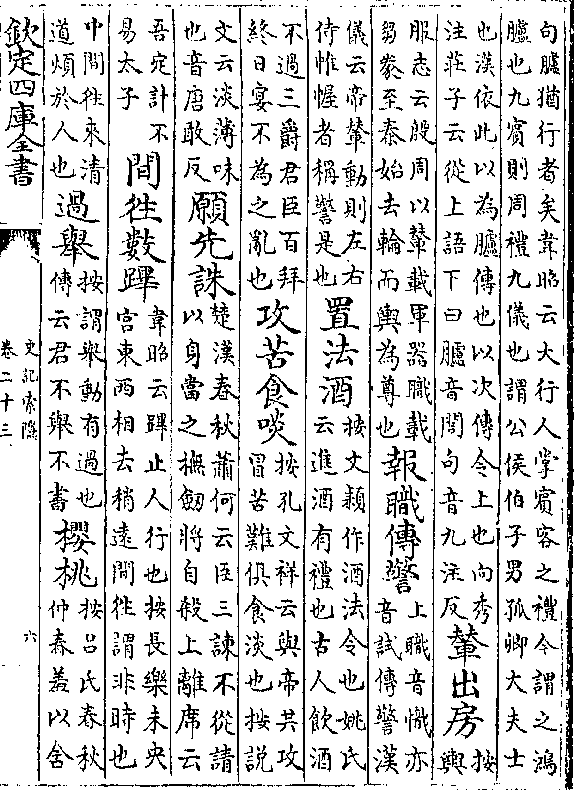 句臚猶行者矣韋昭云大行人掌賓客之禮今謂之鴻
臚也九賓則周禮九儀也謂公侯伯子男孤卿大夫士
也漢依此以為臚傳也以次傳令上也向秀
注莊子云從上語下曰臚音閭句音九注反
輦出房
按
輿
服志云殷周以輦載軍器職載
芻豢至秦始去輪而輿為尊也
報職傳警
上職音幟亦
音試傳警漢
儀云帝輦動則左右
侍帷幄者稱警是也
置法酒
按文穎作酒法令也姚氏
云進酒有禮也古人飲酒
不過三爵君臣百拜
終日宴不為之亂也
攻苦食啖
按孔文祥云與帝共攻
冒苦難俱食淡也按説
文云淡薄味
也音唐敢反
願先誅
楚漢春秋蕭何云臣三諫不從請
以身當之撫劔將自殺上離席云
吾定計不
易太子
間徃數蹕
韋昭云蹕止人行也按長樂未央
宫東西相去稍遠間徃謂非時也
中間徃來清
道煩於人也
過舉
按謂舉動有過也
傳云君不舉不書
櫻桃
按吕氏春秋
仲春羞以舍
欽定四庫全書
史記索隱
卷二十三
六